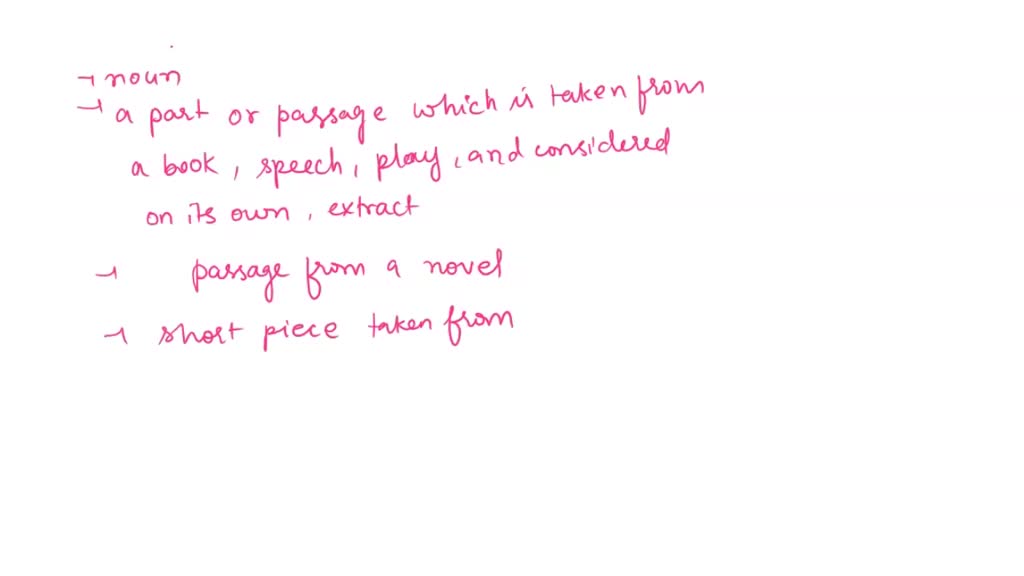 → noun
→ a part or passage which is taken from
a book, speech, play, and considered
on its own, extract
→ passage from a novel
→ short piece taken from